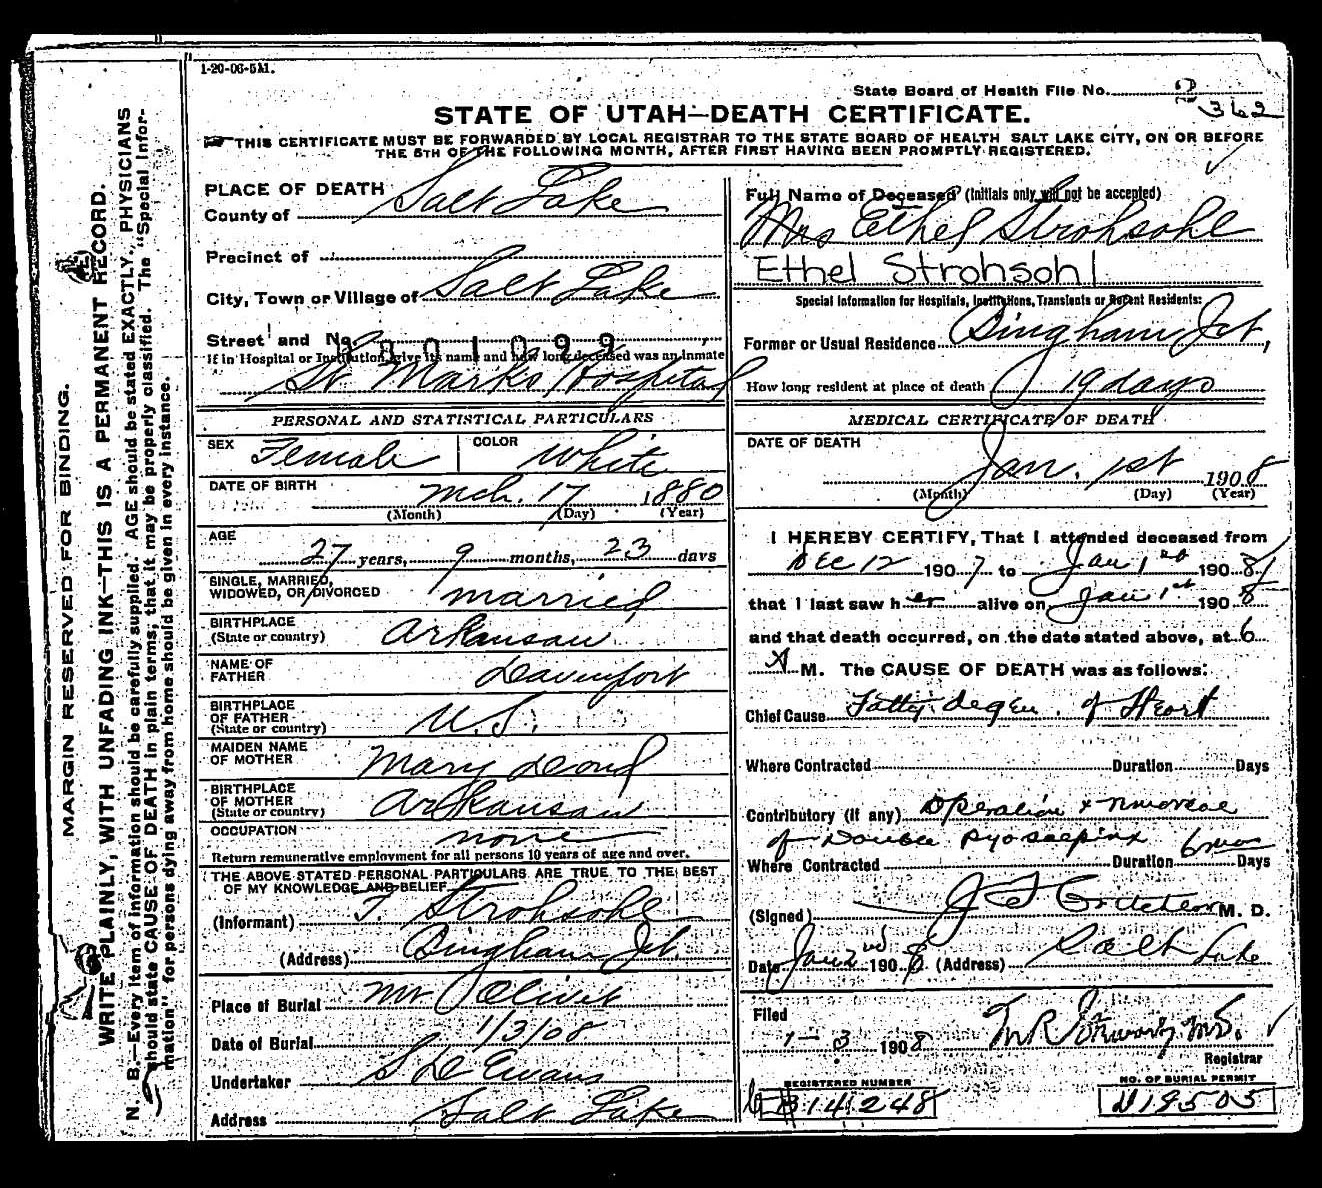 1-20-06-5M.
State Board of Health File No. 2
362
STATE OF UTAH—DEATH CERTIFICATE.
THIS CERTIFICATE MUST BE FORWARDED BY LOCAL REGISTRAR TO THE STATE BOARD OF HEALTH SALT LAKE CITY, ON OR BEFORE
THE 5TH OF THE FOLLOWING MONTH, AFTER FIRST HAVING BEEN PROMPTLY REGISTERED.
MARGIN RESERVED FOR BINDING.
WRITE PLAINLY, WITH UNFADING INK—THIS IS A PERMANENT RECORD.
N. B.—Every item of information should be carefully supplied. AGE should be stated EXACTLY. PHYSICIANS
should state CAUSE OF DEATH in plain terms, that it may be properly classified. The "Special Infor-
mation" for persons dying away from home should be given in every instance.
PLACE OF DEATH
County of Salt Lake
Precinct of
City, Town or Village of Salt Lake
Street and No.
301099
If in Hospital or Institution, give its name and how long deceased was an inmate
St Marks Hospital
PERSONAL AND STATISTICAL PARTICULARS
SEX Female COLOR White
DATE OF BIRTH Mch. 17 1880
(Month) (Day) (Year)
AGE
27 years, 9 months, 23 days
SINGLE, MARRIED,
WIDOWED, OR DIVORCED married
BIRTHPLACE
(State or country) Arkansaw
NAME OF
FATHER Davenport
BIRTHPLACE
OF FATHER
(State or country) U.S.
MAIDEN NAME
OF MOTHER Mary
BIRTHPLACE
OF MOTHER
(State or country) Arkansaw
OCCUPATION none
Return remunerative employment for all persons 10 years of age and over.
THE ABOVE STATED PERSONAL PARTICULARS ARE TRUE TO THE BEST
OF MY KNOWLEDGE AND BELIEF
(Informant) F. Strohsohl
(Address) Bingham Jct.
Place of Burial Mt Olivet
Date of Burial 1/3/08
Undertaker S D Evans
Address Salt Lake
Full Name of Deceased (Initials only will not be accepted)
Mrs Ethel Strohsohl
Ethel Strohsohl
Special Information for Hospitals, Institutions, Transients or Recent Residents:
Former or Usual Residence Bingham Jct,
How long resident at place of death 19 days
MEDICAL CERTIFICATE OF DEATH
DATE OF DEATH
Jan. 1st 1908
(Month) (Day) (Year)
I HEREBY CERTIFY, That I attended deceased from
Dec 12 1907 to Jan 1st 1908
that I last saw her alive on Jan 1st 1908
and that death occurred, on the date stated above, at 6
A M. The CAUSE OF DEATH was as follows:
Chief Cause Fatty degen. of Heart
Where Contracted Duration Days
Contributory (if any) Operation & removal
of Double Pyosalpinx 6 mos
Where Contracted Duration Days
(Signed) M. D.
Date Jan 2nd 1908 (Address) Salt Lake
Filed
1-3 1908
Registrar
REGISTERED NUMBER
B14248
NO. OF BURIAL PERMIT
D19505